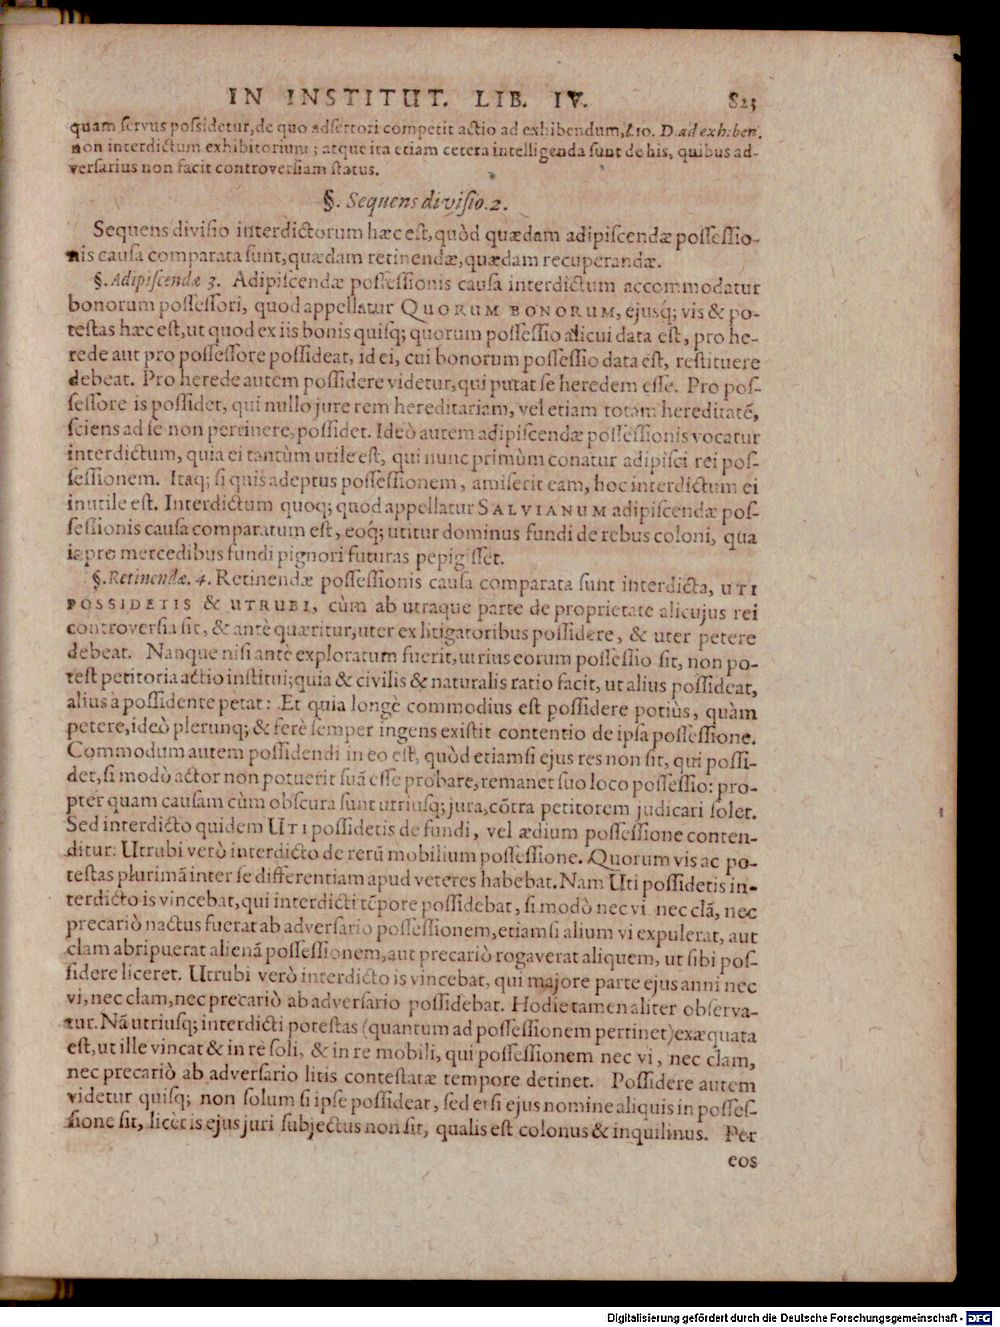 IN INSTITUT. LIB. IV. 823
quam servus possidetur, de quo adsertori competit actio ad exhibendum, l. 10. D. ad exhiben.
non interdictum exhibitorium; atque ita etiam cetera intelligenda sunt de his, quibus ad-
versarius non facit controversiam status.
§. Sequens divisio. 2.
Sequens divisio interdictorum hæc est, quòd quædam adipiscendæ possessio-
nis causa comparata sunt, quædam retinendæ, quædam recuperandæ.
§. Adipiscendæ 3. Adipiscendæ possessionis causa interdictum accommodatur
bonorum possessori, quod appellatur QUORUM BONORUM, ejusq́; vis & po-
testas hæc est, ut quod ex iis bonis quisq; quorum possessio alicui data est, pro he-
rede aut pro possessore possideat, id ei, cui bonorum possessio data est, restituere
debeat. Pro herede autem possidere videtur, qui putat se heredem esse. Pro pos-
sessore is possidet, qui nullo jure rem hereditariam, vel etiam totam hereditatẽ,
sciens ad se non pertinere, possidet. Ideò autem adipiscendæ possessionis vocatur
interdictum, quia ei tantùm utile est, qui nunc primùm conatur adipisci rei pos-
sessionem. Itaq; si quis adeptus possessionem, amiserit eam, hoc interdictum ei
inutile est. Interdictum quoq; quod appellatur SALVIANUM adipiscendæ pos-
sessionis causa comparatum est, eoq́; utitur dominus fundi de rebus coloni, qua
is pro mercedibus fundi pignori futuras pepigisset.
§. Retinendæ. 4. Retinendæ possessionis causa comparata sunt interdicta, UTI
POSSIDETIS & UTRUBI, cùm ab utraque parte de proprietate alicujus rei
controversia sit, & antè quæritur, uter ex litigatoribus possidere, & uter petere
debeat. Nanque nisi antè exploratum fuerit, utrius eorum possessio sit, non po-
test petitoria actio institui; quia & civilis & naturalis ratio facit, ut alius possideat,
alius à possidente petat: Et quia longè commodius est possidere potiùs, quàm
petere, ideò plerunq; & ferè semper ingens existit contentio de ipsa possessione.
Commodum autem possidendi in eo est, quòd etiamsi ejus res non sit, qui possi-
det, si modò actor non potuerit suã esse probare, remanet suo loco possessio: pro-
pter quam causam cùm obscura sunt utriusq; jura, cõtra petitorem judicari solet.
Sed interdicto quidem UTI possidetis de fundi, vel ædium possessione conten-
ditur: Utrubi verò interdicto de rerũ mobilium possessione. Quorum vis ac po-
testas plurimã inter se differentiam apud veteres habebat. Nam Uti possidetis in-
terdicto is vincebat, qui interdicti tẽpore possidebat, si modò nec vi nec clã, nec
precariò nactus fuerat ab adversario possessionem, etiamsi alium vi expulerat, aut
clam abripuerat alienã possessionem, aut precariò rogaverat aliquem, ut sibi pos-
sidere liceret. Utrubi verò interdicto is vincebat, qui majore parte ejus anni nec
vi, nec clam, nec precariò ab adversario possidebat. Hodie tamen aliter observa-
tur. Nã utriusq; interdicti potestas (quantum ad possessionem pertinet) exæquata
est, ut ille vincat & in re soli, & in re mobili, qui possessionem nec vi, nec clam,
nec precariò ab adversario litis contestatæ tempore detinet. Possidere autem
videtur quisq; non solum si ipse possideat, sed etsi ejus nomine aliquis in posses-
sione sit, licèt is ejus juri subjectus non sit, qualis est colonus & inquilinus. Per
eos
Digitalisierung gefördert durch die Deutsche Forschungsgemeinschaft - DFG